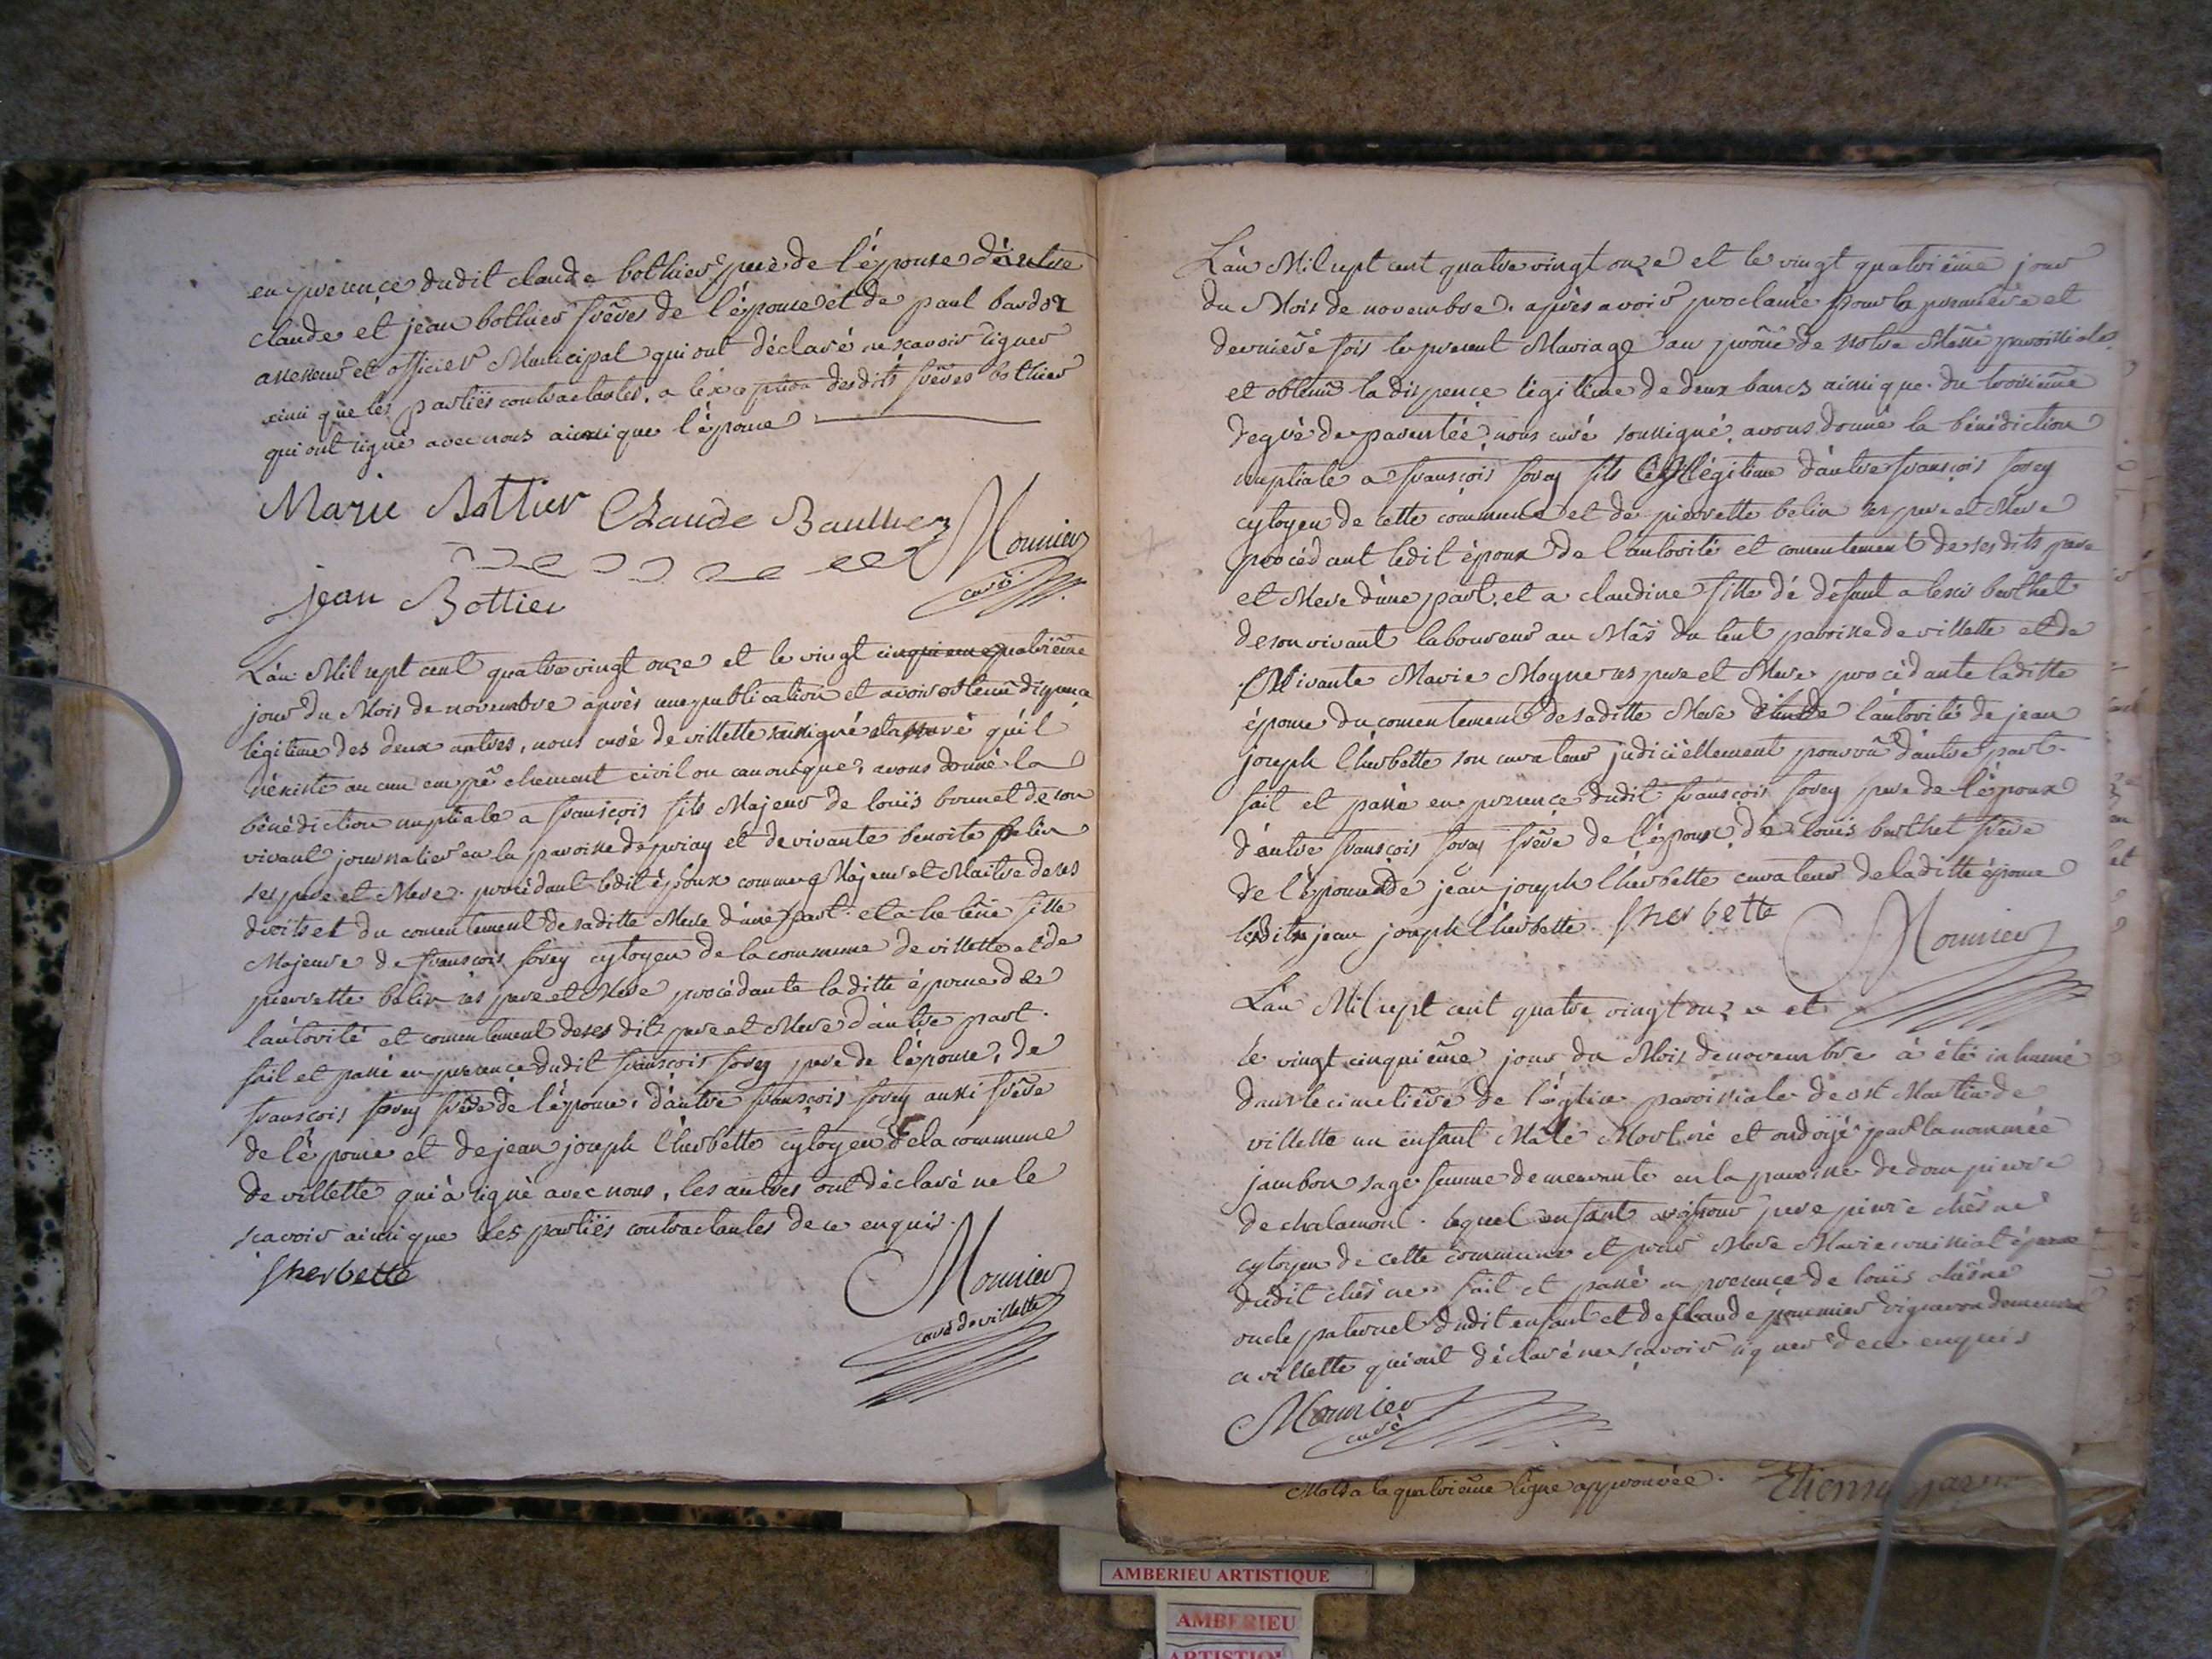 en presence dudit claude bothier pere de l'épouse d'autre
claude et jean bothier frêres de l'épouse et de paul bardoz
assesseur et officier Municipal qui ont déclaré ne scavoir signer
ainsi que les partiës contractantes, a l'exception desdits frêres bothier
qui ont signé avec nous ainsi que l'épouse
Marie Bottier Claude Baultier Mounier
curé
jean Bottier
L'an Mil sept cent quatre vingt onze et le vingt cinquieme quatriême
jour du Mois de novembre après une publication et avoir obtenû dispence
légitime des deux autres, nous curé de villette soussigné et assuré qu'il
n'éxiste aucun empêchement civil ou canonique, avons donné la
bénédiction nuptiale a françois fils Majeur de louïs brunet de son
vivant journalier en la paroisse de priay et de vivante benoite belin
ses pere et Mere procédant ledit époux comme Majeur et Maitre de ses
droits et du consentement de saditte Mere d'une part. et a helêne fille
Majeure de françois forey cytoyen de la commune de villette et de
pierrette belin ses pere et Mere procédante laditte épouse de
l'autorité et consentement de ses dits pere et Mere d'autre part.
fait et passé en presence dudit françois forey pere de l'épouse, de
françois forey frêre de l'épouse, d'autre françois forey aussi frêre
de l'épouse et de jean joseph lherbette cytoyen de la commune
de villette qui à signé avec nous, les autres ont déclaré ne le
scavoir ainsi que les partiës contractantes de ce enquis.
lherbette
Mounier
curé de villette
L'an Mil sept cent quatre vingt onze et le vingt quatriême jour
du Mois de novembre. après avoir proclamé pour la premiere et
derniêre fois le present Mariage au prône de notre Messe paroissiale
et obtenû la dispence légitime de deux bancs ainsi que du troisième
degré de parentée, nous curé soussigné, avons donné la bénédiction
nuptiale a françois forey fils légitime d'autre françois forey
cytoyen de cette commune et de pierrette belin ses pere et Mere
procédant ledit époux de l'autorité et consentement de ses dits pere
et Mere d'une part, et a claudine fille de défunt alexis berthet
de son vivant laboureur au Mâs du lent paroisse de villette et de
vivante Marie Mogne ses pere et Mere procédante laditte
épouse du consentement de saditte Mere et de l'autorité de jean
joseph lherbette son curateur judiciëllement pourvû d'autre part.
fait et passé en presence dudit françois forey pere de l'époux
d'autre françois forey frêre de l'époux, de louis berthet frêre
de l'épouse de jean joseph lherbette curateur de laditte épouse
ledit jean joseph lherbette. lherbette
Mounier
L'an Mil sept cent quatre vingt onze et
le vingt cinquiême jour du Mois de novembre à été inhumé
dans le cimetiêre de l'église paroissiale de st Martin de
villette un enfant Mâle Mort né et ondoÿé par la nommée
jambon sage femme demeurante en la paroisse de dompierre
de chalamont. lequel enfant a pour pere pierre chêne
cytoyen de cette commune et pour Mere Marie épouse
dudit chêne. fait et passé en presence de louïs chêne
oncle paternel dudit enfant et de claude pommier vigneron demeurant
a villette qui ont déclaré ne sçavoir signer de ce enquis
Mounier
curé
Mots a la quatriême ligne approuvée. Etienne
AMBERIEU ARTISTIQUE
AMBERIEU
ARTISTIQUE